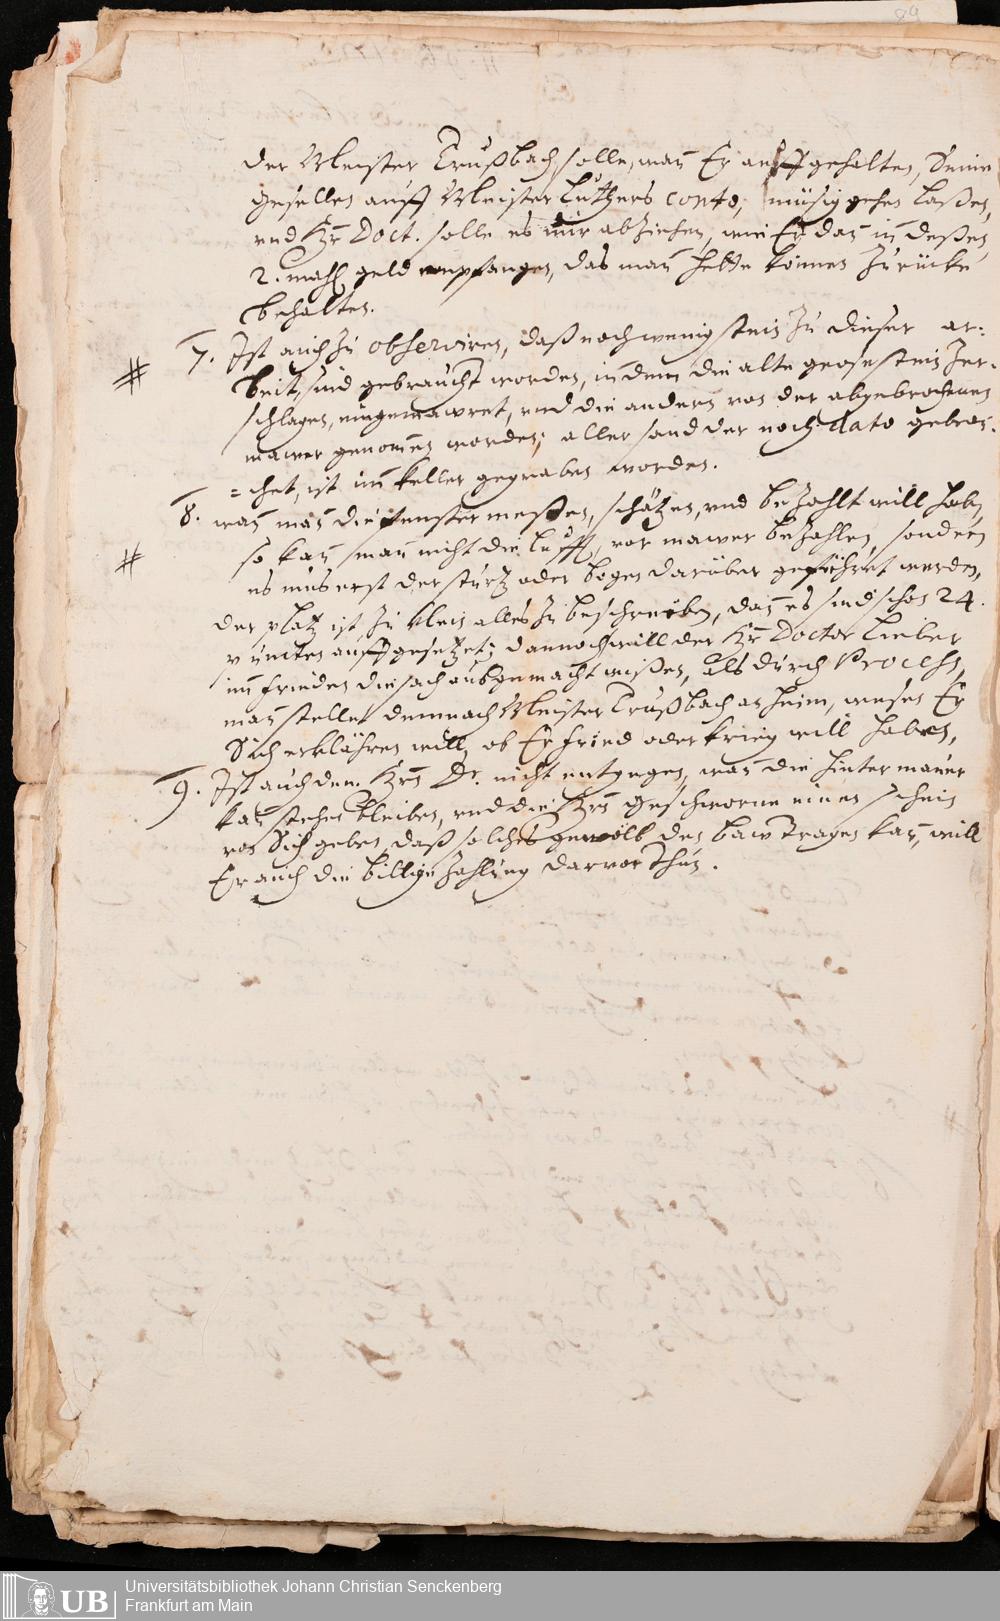 der Meister Traußbach solle, wan Er auffgehalten, Seine
gesellen auff Meister Luthers conto, müsig gehen laßen,
vnd Hr Doct. solle es mir abziehen, wie Er dan in deßen
2. mahl geld empfangen, das man hette können zurücke
behalten.
7. Ist auch zu observiren, daß noch wenig stein zu dieser ar:
# beit, sind gebraucht worden, in dem die alte große stein zer-
schlagen, eingemawret, vnd die andern von der abgebrochenen
mawer genommen worden; aller sand der noch dato gebrau:
=chet, ist im keller gegraben worden.
8. wan man die fenster meßen, schätzen, vnd bezahlt will haben,
# so kan man nicht die lufft, vor mawer bezahlen, sondern
es mus erst der sturtz oder bogen darüber geführet werden,
der platz ist zu klein alles zu beschreiben, dan es sind schon 24.
puncten auffgesetzet; dannoch will der Hr Doctor lieber
im frieden die sach ausgemacht wißen, als durch Process,
man stellet demnach Meister Traußbach anheim, weßen Er
Sich erklähren will, ob Er fried oder krieg will haben,
9. Ist auch dem Hrn Dr. nicht entgegen, wan die hinter mauer
kan stehen bleiben, vnd die Hrn geschworne einen schein
von Sich geben, daß solches gewölb den baw tragen kan, will
Er auch die billige zahlung darvor thun.
Universitätsbibliothek Johann Christian Senckenberg
UB Frankfurt am Main